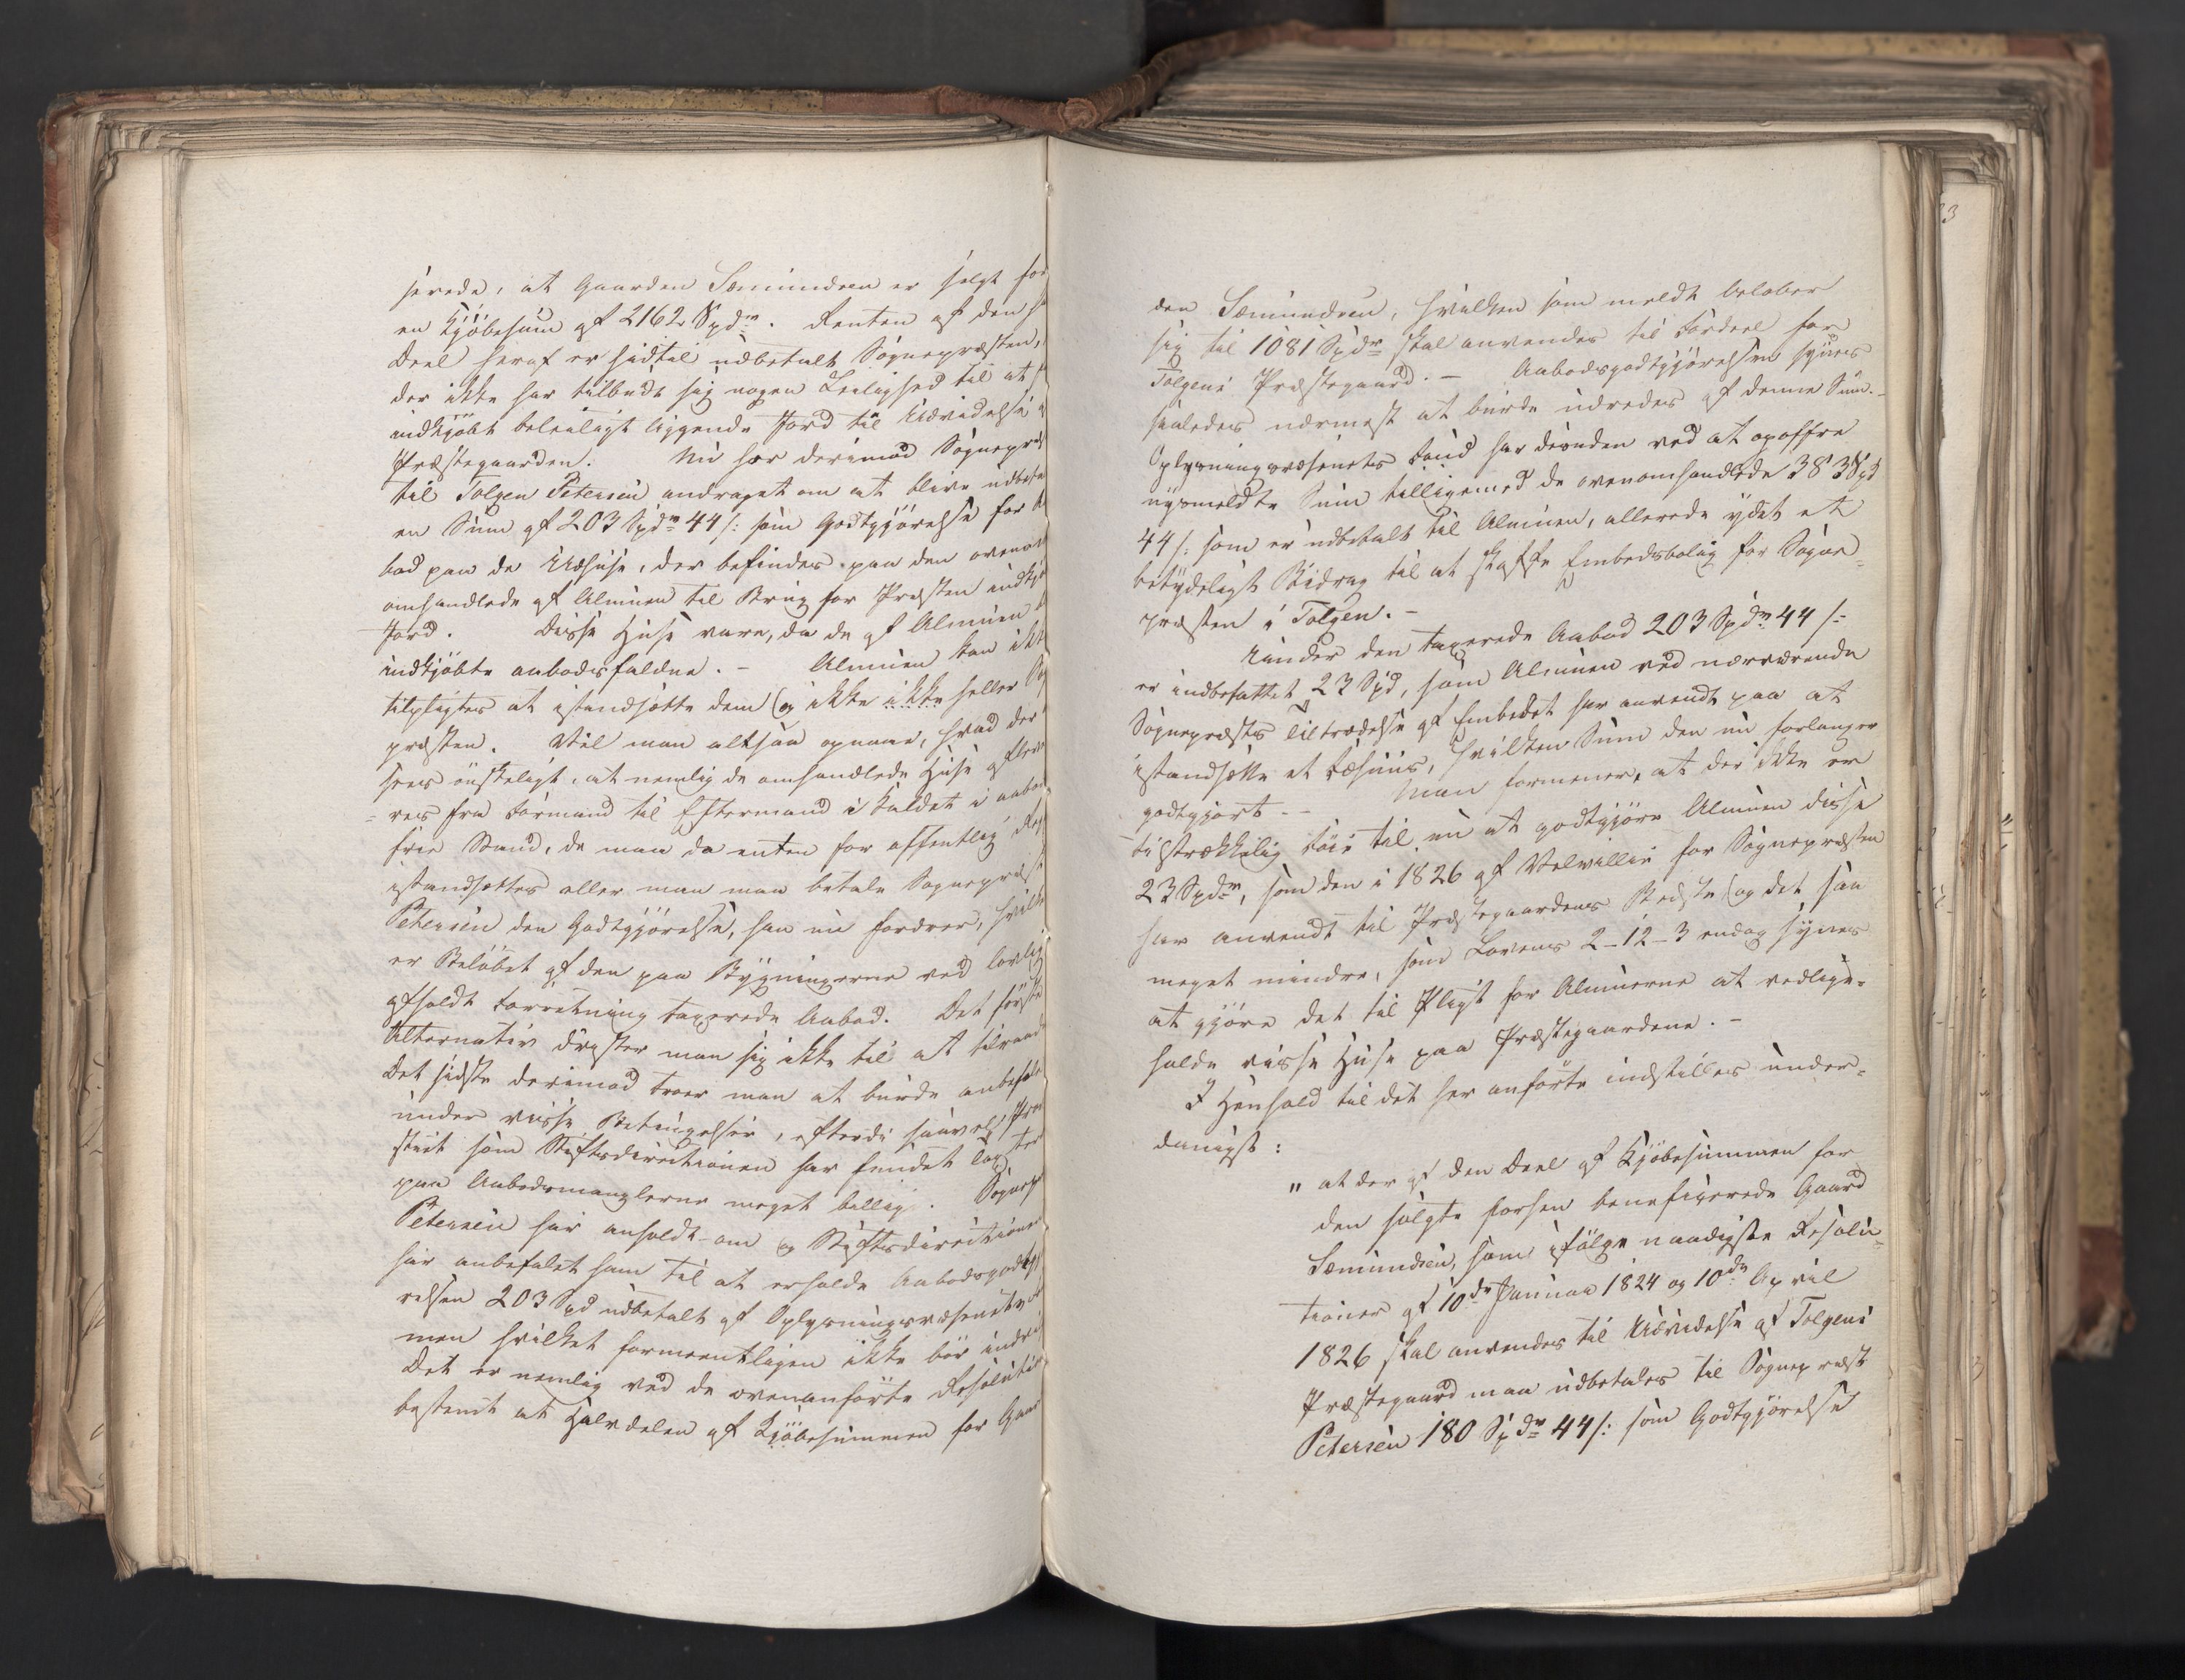 serede, at Gaarden Sæmundseen er solgt for
en Kjöbesum af 2162 Spdr. Renten af den h
Deel heraf er hidtil udbetalt Sognepræsten,
der ikke har tilbudt sig nogen Leilighed til at f
indkjöbt beleiligt liggende Jord til Udvidelse a
Præstegaarden. Nu har derimod Sognepræst
til Tolgen Petersen andraget om at blive udbeta
en Sum af 203 Spdr 44 s: som Godtgjörelse for A
bod paa de Udhuse, der befindes paa den ovenom
omhandlede af Almuen til Brug for Præsten indkjö
Jord. Disse Huse vare, da de af Almuen b
indkjöbte aabodsfaldne. - Almuen kan ikke
tilpligtes at istandsætte dem (og ikke ikke heller Sog
præsten. Vil man altsaa opnaae, hvad der
sees önskeligt, at nemlig de omhandlede Huse afleve
= res fra Formand til Eftermand i Kaldet i aabod
frie Stand, da maa de enten for offentlig Reg
istandsættes eller man maa betale Sognepræst
Petersen den Godtgjörelse, han nu fordrer, hvilke
er Belöbet af den paa Bygningerne ved lovlig
afholdt Forretning taxerede Aabod. Det förste
Alternativ drister man sig ikke til at tilraade
Det sidste derimod troer man at burde anbefale
under visse Betingelser, efterdi saavel Prov
stiet som Stiftsdirectionen har fundet Taxten
paa Aabodsmanglerne meget billig. Sognepr
Petersen har anholdt om og Stiftsdirectionen
har anbefalet ham til at erholde Aabodsgodtgj
relsen 203 Spd udbetalt af Oplysningsvæsenets F
men hvilket formeentligen ikke bör indro
Det er nemlig ved de ovenanförte Resolution
bestemt at Halvdelen af Kjöbesummen for Gaar
den Sæmundseen, hvilken som meldt belöber
sig til 1081 Spdr skal anvendes til Fordeel for
Tolgens Præstegaard. - Aabodsgodtgjörelsen synes
saaledes nærmest at burde udredes af denne Sum. -
Oplysningsvæsenets Fond har desuden ved at opoffre
nysmeldte Sum tilligemed de ovenomhandlede 383 Spd
44 s: som er udbetalt til Almuen, allerede ydet et
betydeligt Bidrag til at skaffe Embedsbolig for Sogne=
præsten i Tolgen. -
Under den taxerede Aabod 203 Spdr 44 s:
er indbefattet 23 Spd, som Almuen ved nærværende
Sognepræsts Tiltrædelse af Embedet har anvendt paa at
istandsætte et Fæhuus, hvilken Sum den nu forlanger
godtgjort. - Man formener, at der ikke er
tilstrækkelig Föie til nu at godtgjöre Almuen disse
23 Spdr, som den i 1826 af Velvillie for Sognepræsten
har anvendt til Præstegaardens Bedste (og det saa
meget mindre, som Lovens 2-12-3 endog synes
at gjöre det til Pligt for Almuerne at vedlige=
holde visse Huse paa Præstegaardene. -
I Henhold til det her anförte indstilles under=
danigst:
" at der af den Deel af Kjöbesummen for
den solgte forhen beneficerede Gaard
Sæmundseen, som ifölge naadigste Resolu=
tioner af 10de Januar 1824 og 10de April
1826 skal anvendes til Udvidelse af Tolgens
Præstegaard maa udbetales til Sognepræst
Petersen 180 Spdr 44 s: som Godtgjörelse